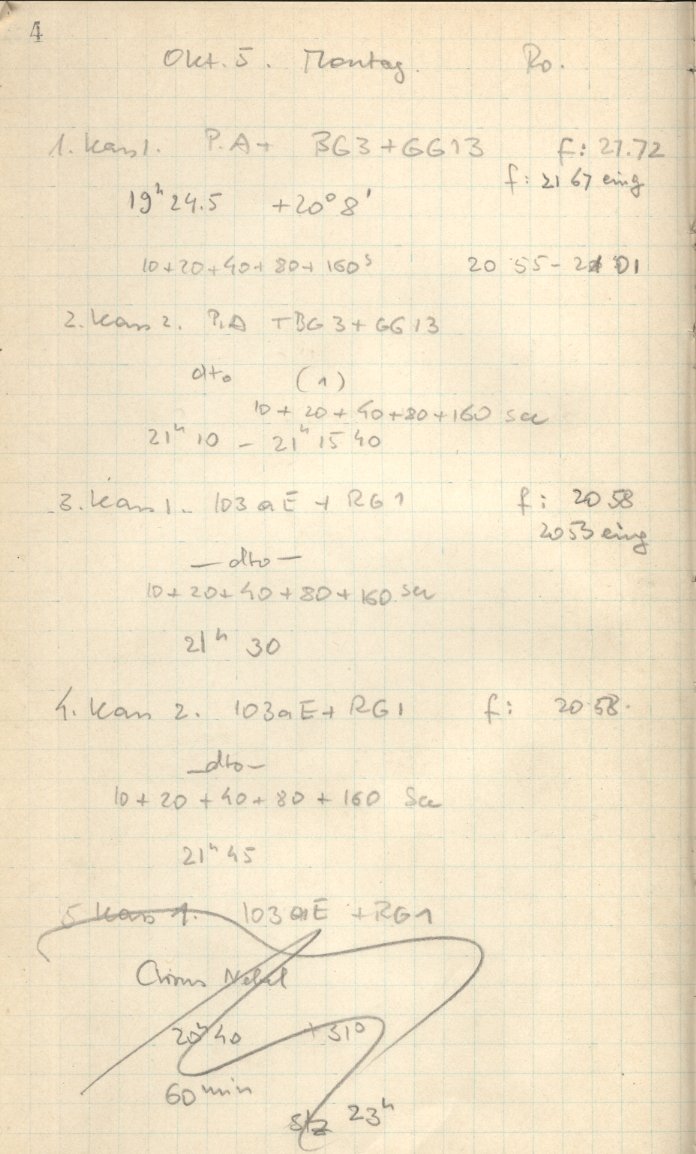 4
Okt. 5. Montag. Ro.
1. Kass 1. P.A + BG3 + GG13 f: 21.72
f: 21 67 eing
19ʰ 24.5 +20° 8'
10+20+40+80+160ˢ 20 55 - 21 01
2. Kass 2. P.A + BG3 + GG13
dto (1)
10 + 20 + 40 + 80 + 160 sec
21ʰ 10 – 21ʰ 15 40
3. Kass 1. 103aE + RG1 f: 20 58
20 53 eing
— dto —
10 + 20 + 40 + 80 + 160 sec
21ʰ 30
4. Kass 2. 103aE + RG1 f: 20 58.
— dto —
10 + 20 + 40 + 80 + 160 Sec
21ʰ 45
5 Kass 1. 103aE + RG1
Cirrus Nebel
20ʰ 40 +31°
60 min
Stz 23ʰ